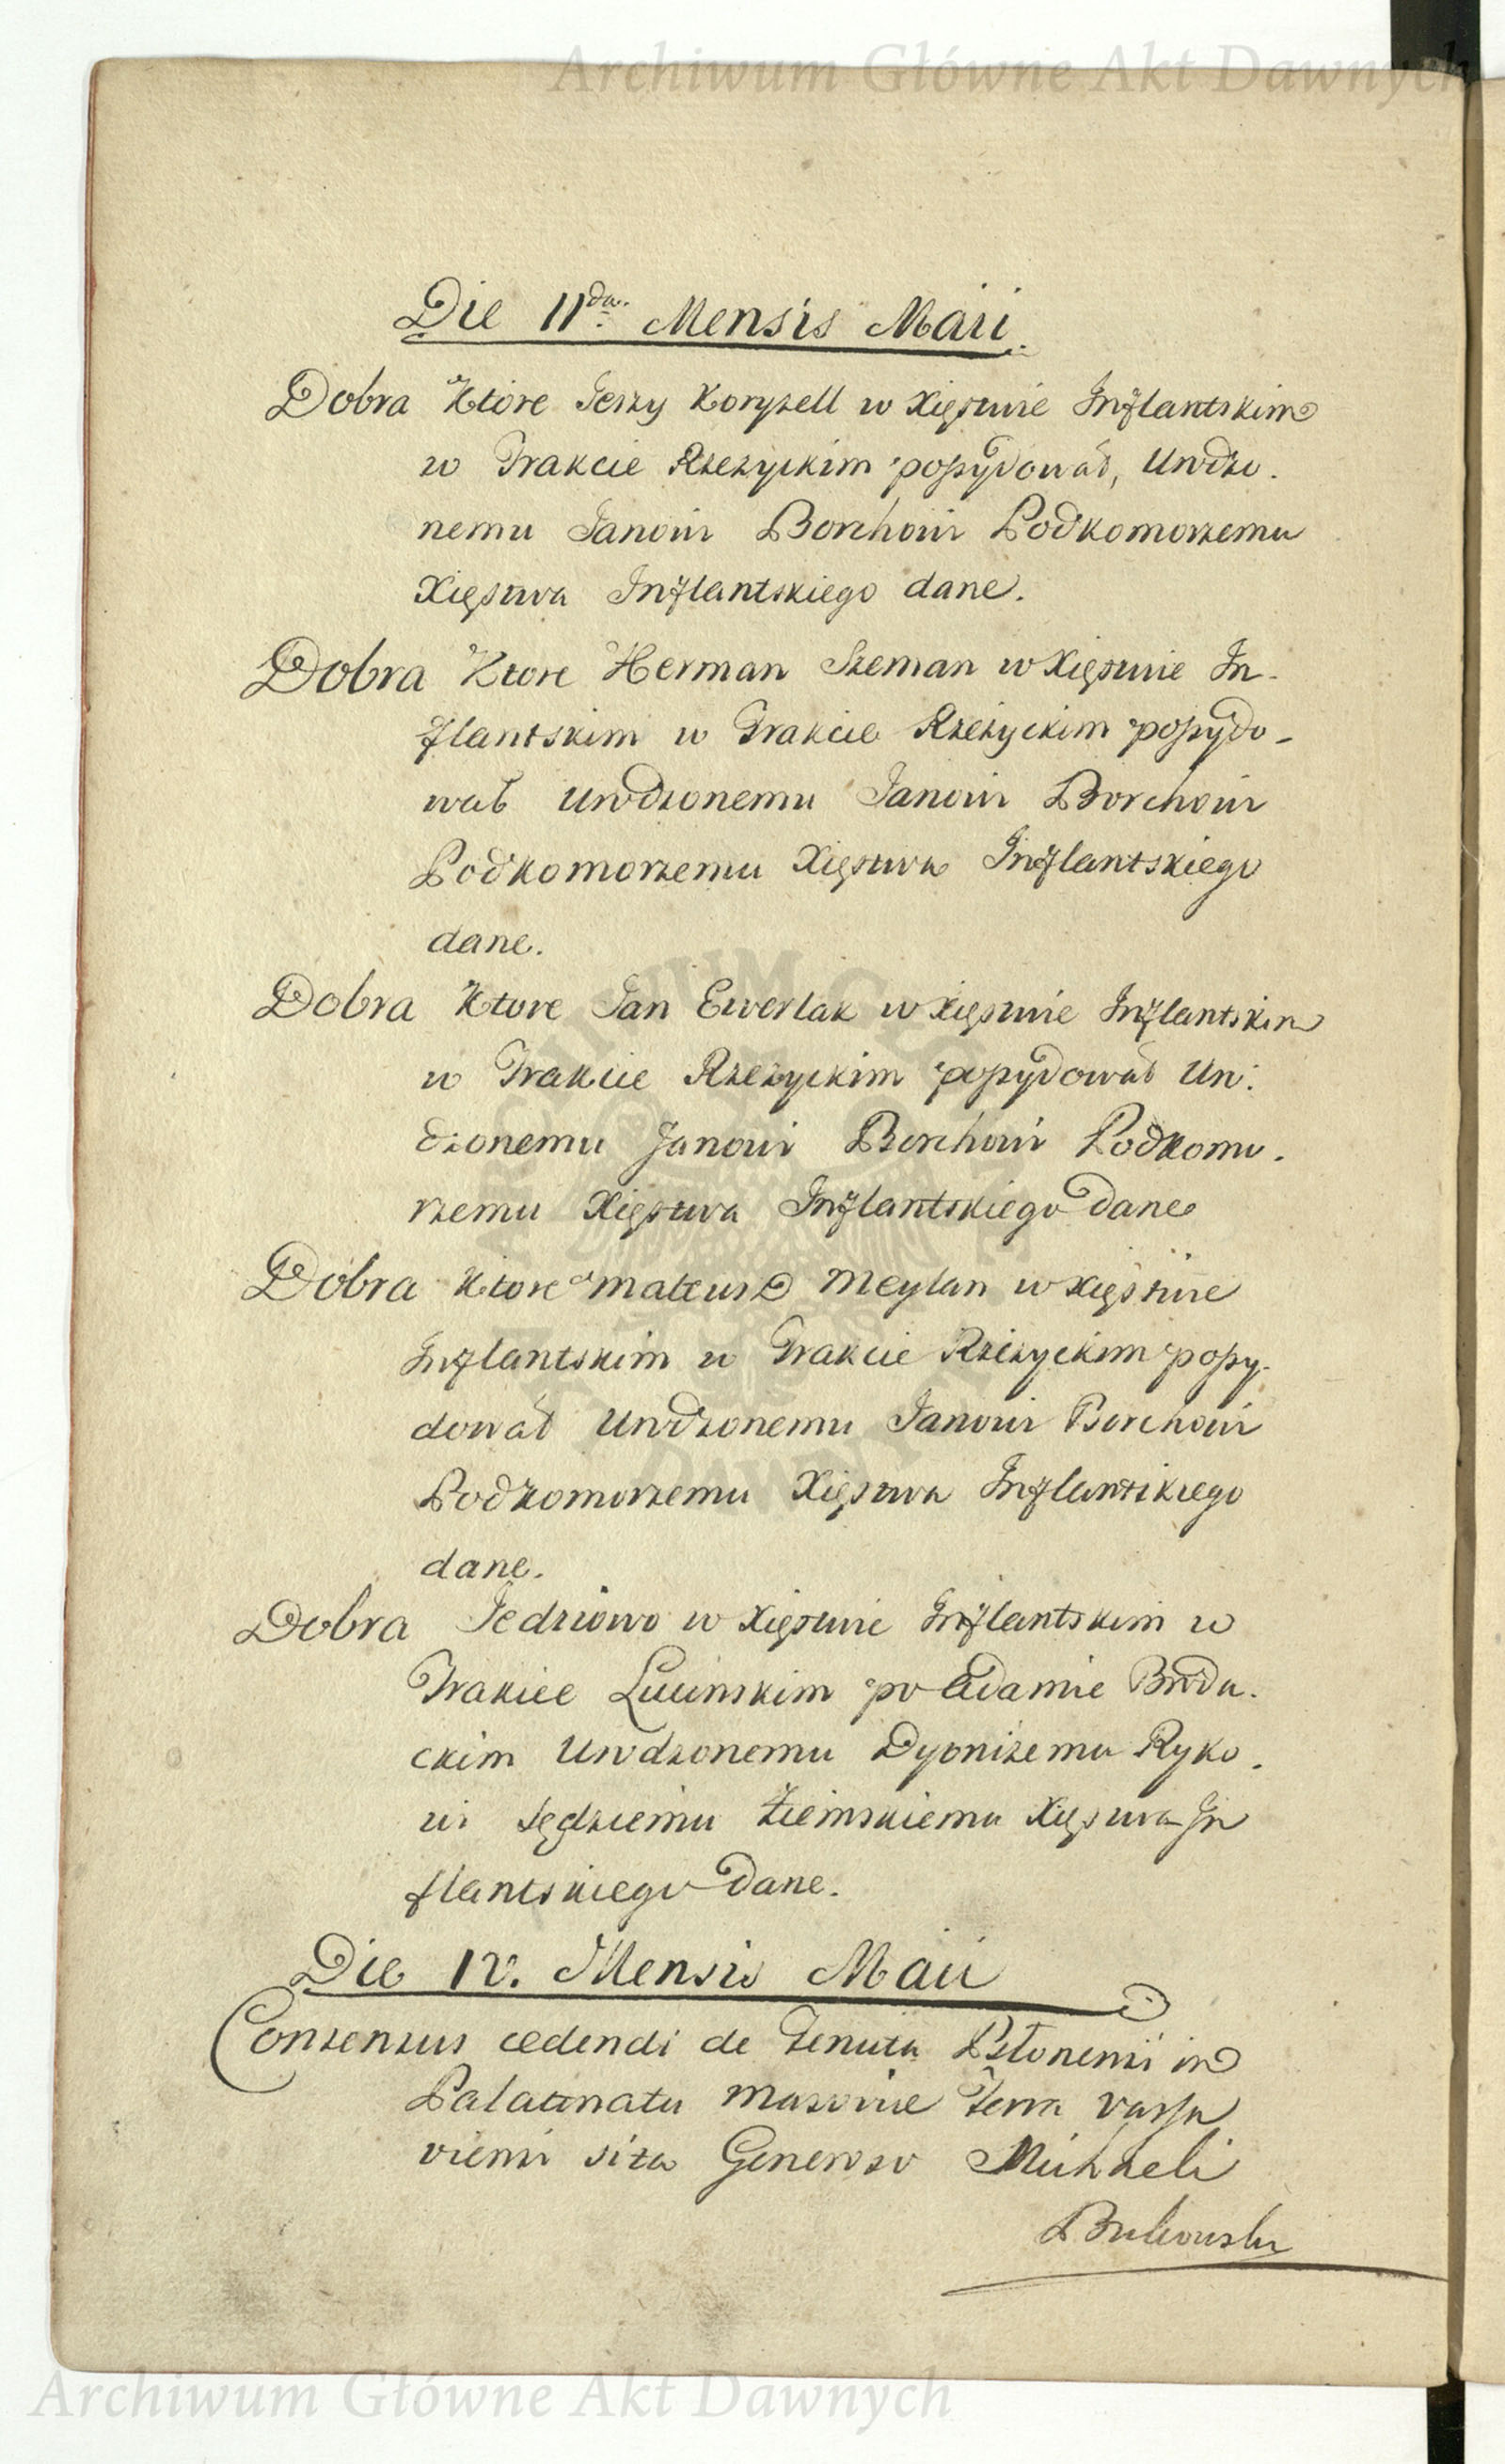 Archiwum Główne Akt Dawnych
Die 11da. Mensis Maii.
Dobra Ktore Jerzy Koryzell w Xięstwie Inflantskim
w Trakcie Rzeżyckim possydował, Urodzo-
nemu Janowi Borchowi Podkomorzemu
Xięstwa Inflantskiego dane.
Dobra Ktore Herman Szeman w Xięstwie In-
flantskim w Trakcie Rzeżyckim possydo-
wał Urodzonemu Janowi Borchowi
Podkomorzemu Xięstwa Inflantskiego
dane.
Dobra Ktore Jan Ewerlak w Xięstwie Inflantskim
w Trakcie Rzeżyckim possydował Uro-
dzonemu Janowi Borchowi Podkomo-
rzemu Xięstwa Inflantskiego dane
Dobra Ktore Mateusz Meylan w Xięstwie
Inflantskim w Trakcie Rzeżyckim possy-
dował Urodzonemu Janowi Borchowi
Podkomorzemu Xięstwa Inflantskiego
dane.
Dobra Jedziowo w Xięstwie Inflantskim w
Trakcie Lucinskim po Adamie
ckim Urodzonemu Dyonizemu Ryko-
wi Sędziemu Ziemskiemu Xięstwa In
flantskiego dane.
Die 12. Mensis Maii
Consensus cedendi de Tenuta in
Palatinatu Masoviae Terra Varsa
viensi sita Generoso Michaeli
Bukowski
Archiwum Główne Akt Dawnych